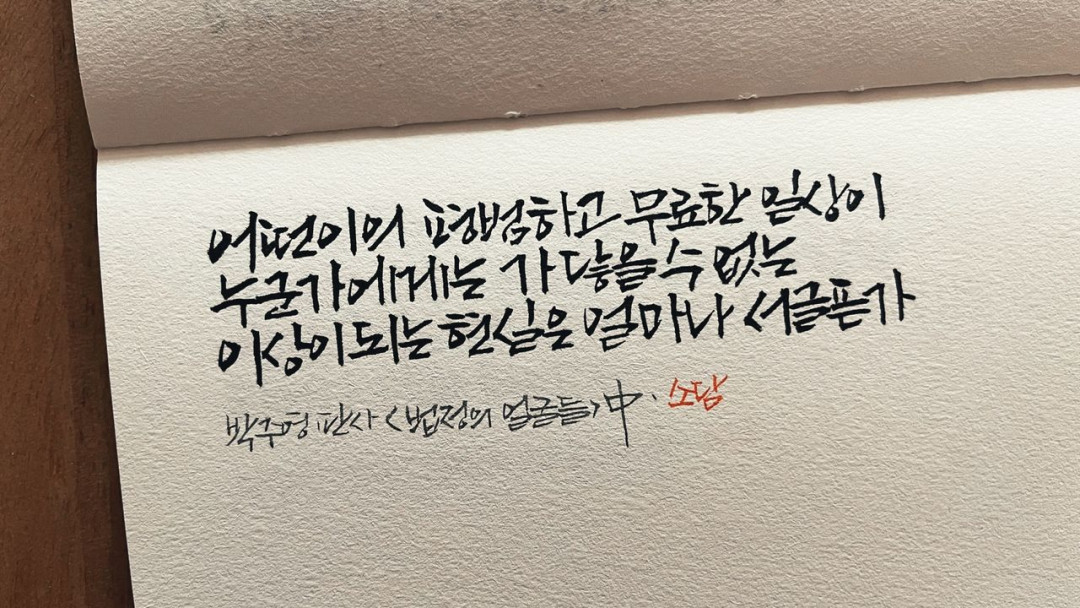 어떤이의 평범하고 무료한 일상이
누군가에게는 가 닿을 수 없는
이상이 되는 현실은 얼마나 서글픈가
박주영 판사 <법정의 얼굴들> 中. 소담